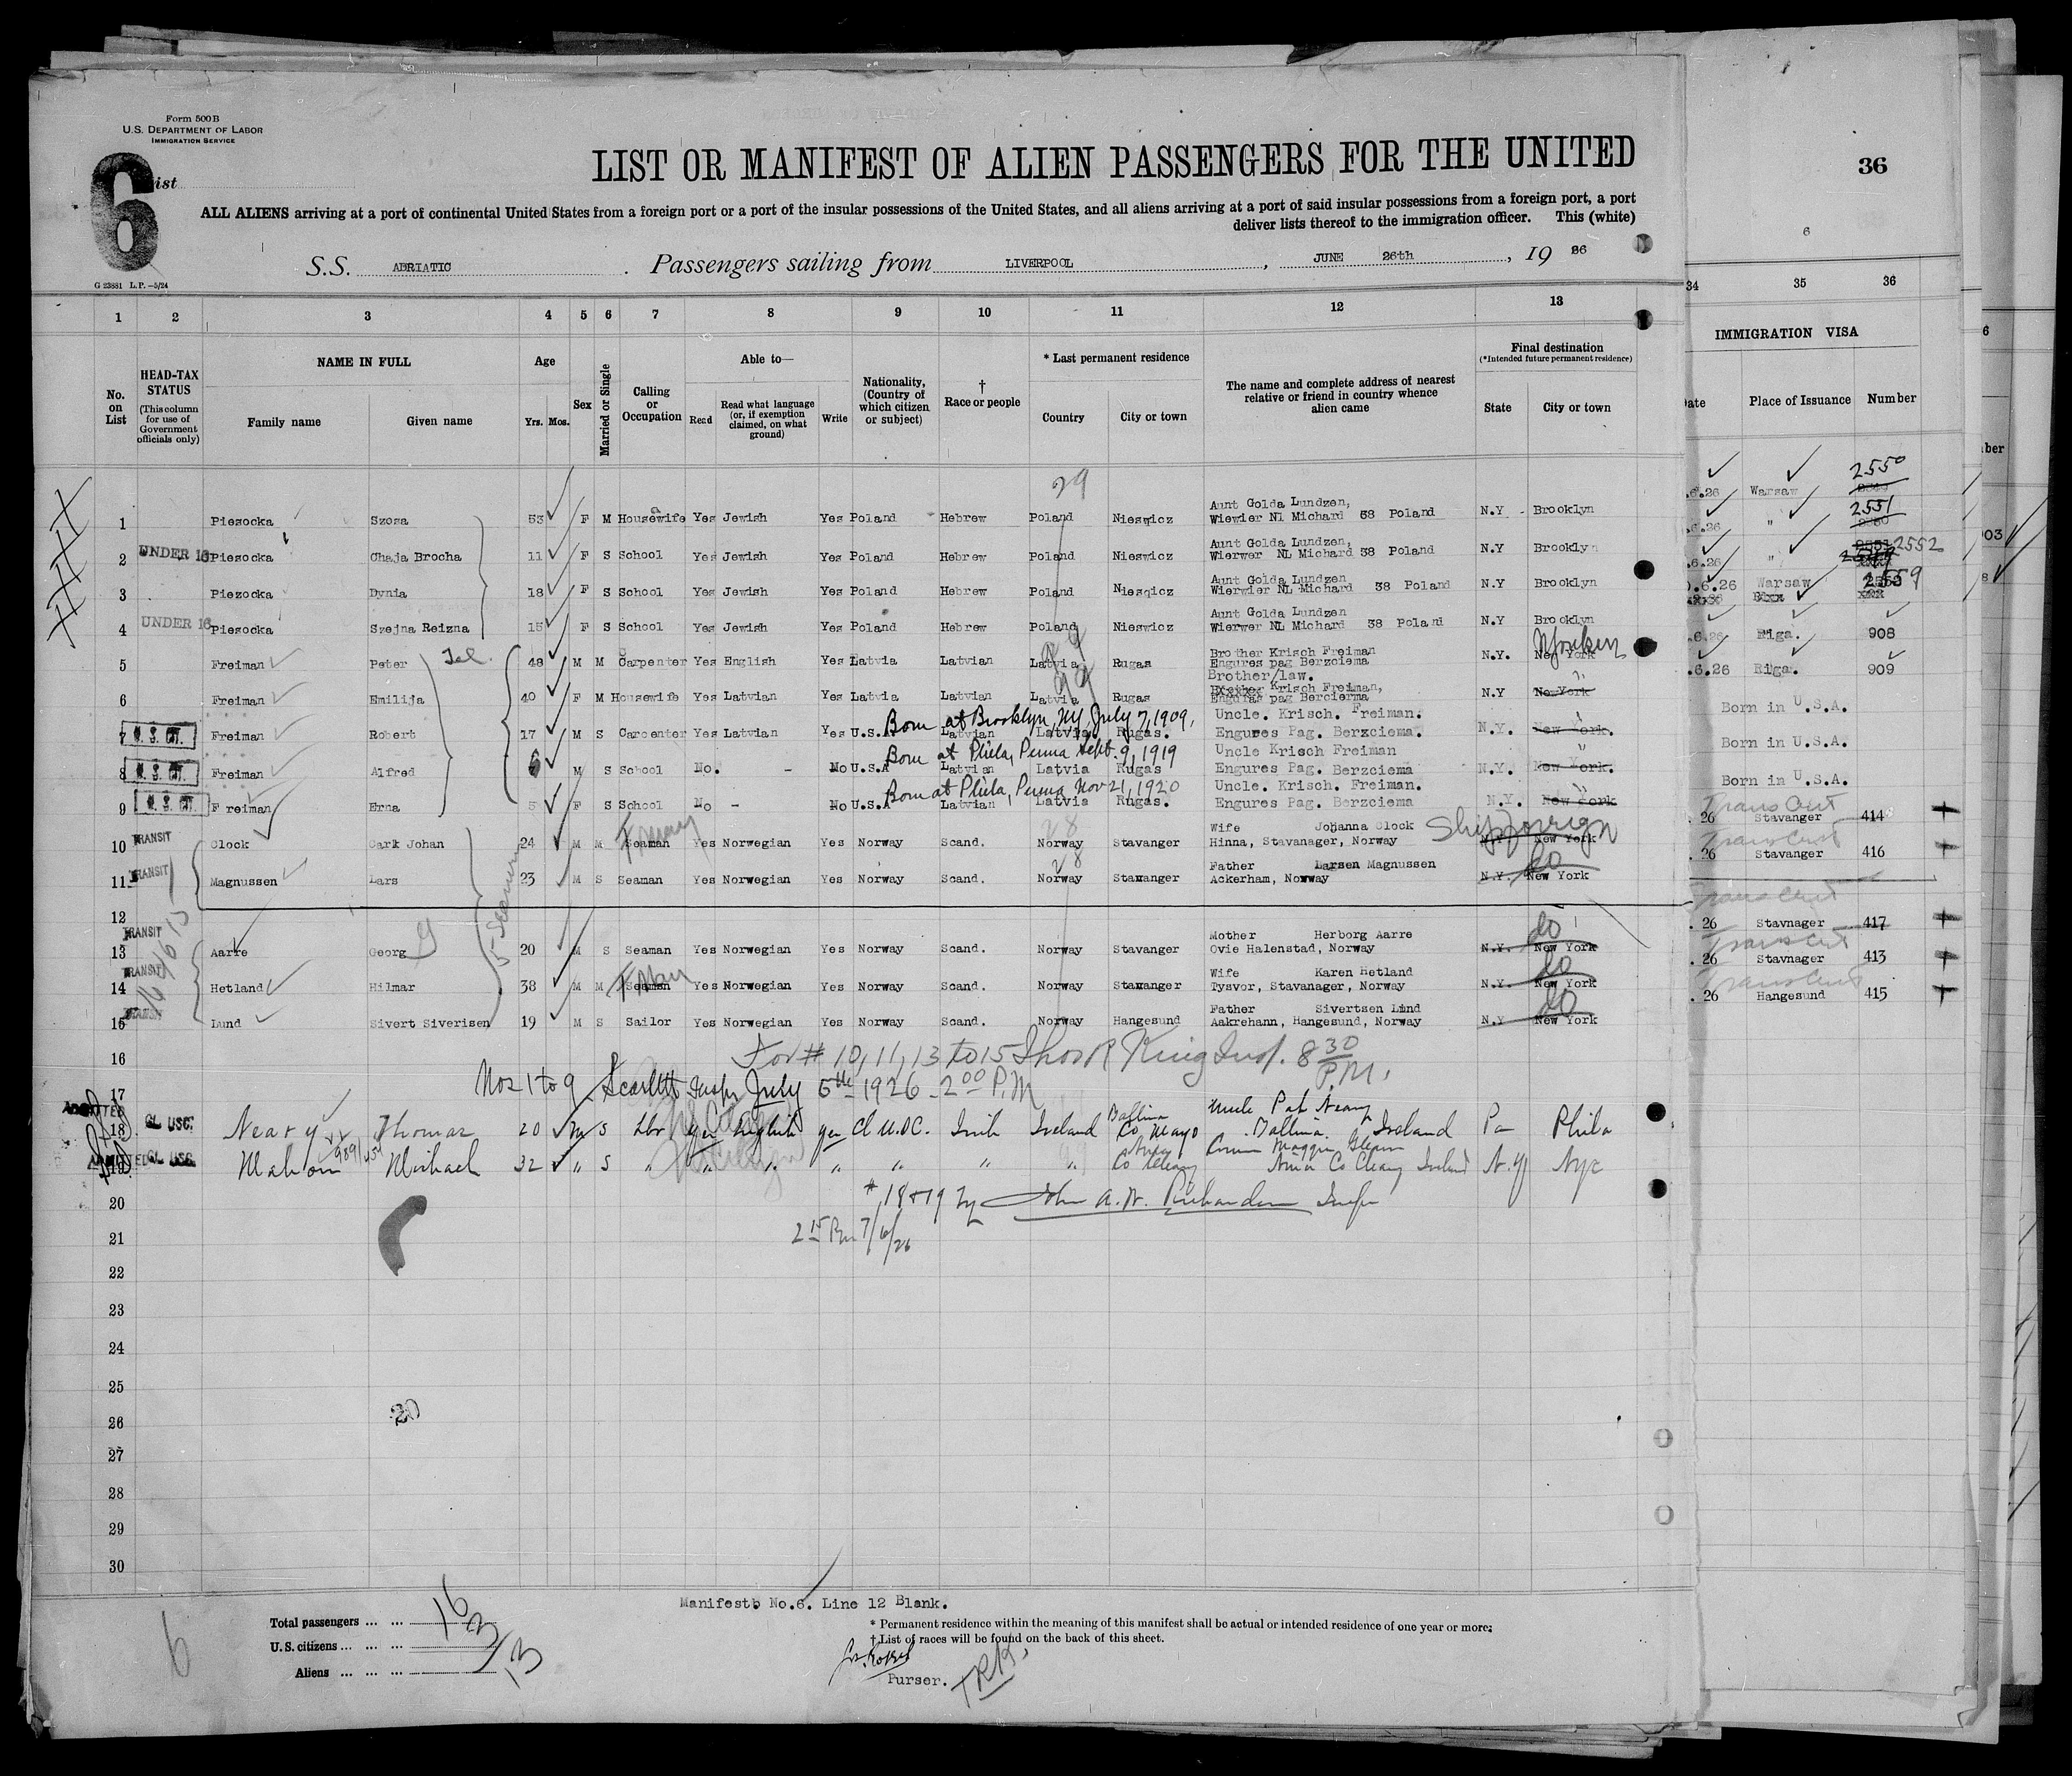 Form 500 B
U.S. DEPARTMENT OF LABOR
IMMIGRATION SERVICE
6
ist
LIST OR MANIFEST OF ALIEN PASSENGERS FOR THE UNITED
36
ALL ALIENS arriving at a port of continental United States from a foreign port or a port of the insular possessions of the United States, and all aliens arriving at a port of said insular possessions from a foreign port, a port
deliver lists thereof to the immigration officer. This (white)
6
S.S. ADRIATIC. Passengers sailing from LIVERPOOL, JUNE 26th, 19 26
G 23881 L.P.—5/24
1 2 3 4 5 6 7 8 9 10 11 12 13 34 35 36
No. on List
HEAD-TAX STATUS
(This column for use of Government officials only)
NAME IN FULL
Family name Given name
Age
Yrs. Mos.
Sex
Married or Single
Calling or Occupation
Able to—
Read
Read what language (or, if exemption claimed, on what ground)
Write
Nationality, (Country of which citizen or subject)
† Race or people
* Last permanent residence
Country City or town
The name and complete address of nearest relative or friend in country whence alien came
Final destination
(*Intended future permanent residence)
State City or town
IMMIGRATION VISA
Date Place of Issuance Number
29
1 Piesocka Szosa 53 F M Housewife Yes Jewish Yes Poland Hebrew Poland Nieswicz Aunt Golda Lundzen, Wiewier Nl Michard 38 Poland N.Y Brooklyn .6.26 Warsaw 2550
2 UNDER 16 Piesocka Chaja Brocha 11 F S School Yes Jewish Yes Poland Hebrew Poland Nieswicz Aunt Golda Lundzen, Wierwer NL Michard 38 Poland N.Y Brooklyn .6.26 " 2551
3 Piezocka Dynia 18 F S School Yes Jewish Yes Poland Hebrew Poland Niesqicz Aunt Golda Lundzen Wierwier NL Michard 38 Poland N.Y Brooklyn .6.26 " 2552
4 UNDER 16 Piesocka Szejna Reizna 15 F S School Yes Jewish Yes Poland Hebrew Poland Nieswicz Aunt Golda Lundzen Wierwer NL Michard 38 Poland N.Y Brooklyn .6.26 Warsaw
5 Freiman Peter 48 M M Carpenter Yes English Yes Latvia Latvian Latvia Rugas Brother Krisch Freiman Engures pag Berzciema N.Y. New York .6.26 Riga. 908
6 Freiman Emilija 40 F M Housewife Yes Latvian Yes Latvia Latvian Latvia Rugas Brother/law. Krisch Freiman, Engures pag Bercierma N.Y New York .6.26 Riga. 909
Born at Brooklyn, NY, July 7, 1909,
7 Freiman Robert 17 M S Carpenter Yes Latvian Yes U.S.A Latvian Latvia Rugas. Uncle. Krisch. Freiman. Engures Pag. Berzciema. N.Y. New York. Born in U.S.A.
Born at Phila, Penna Sept. 9, 1919
8 Freiman Alfred 6 M S School No. - No U.S.A Latvian Latvia Rugas Uncle Krisch Freiman Engures Pag. Berzciema N.Y. New York. Born in U.S.A.
Born at Phila, Penna Nov 21, 1920
9 Freiman Erna 5 F S School No - No U.S.A. Latvian Latvia Rugas. Uncle. Krisch. Freiman. Engures Pag. Berzciema N.Y. New York Born in U.S.A.
10 TRANSIT Clock Carl Johan 24 M M Seaman Yes Norwegian Yes Norway Scand. Norway Stavanger Wife Johanna Clock Hinna, Stavanager, Norway N.Y New York Ship foreign Trans Cert . 26 Stavanger 414
11 TRANSIT Magnussen Lars 23 M S Seaman Yes Norwegian Yes Norway Scand. Norway Stavanger Father Larsen Magnussen Ackerham, Norway N.Y. New York do Trans Cert . 26 Stavanger 416
12
13 TRANSIT Aarre Georg 20 M S Seaman Yes Norwegian Yes Norway Scand. Norway Stavanger Mother Herborg Aarre Ovie Halenstad, Norway N.Y. New York do Trans Cert . 26 Stavnager 417
14 TRANSIT Hetland Hilmar 38 M M Seaman Yes Norwegian Yes Norway Scand. Norway Stavanger Wife Karen Hetland Tysvor, Stavanager, Norway N.Y. New York do Trans Cert . 26 Stavnager 413
15 Lund Sivert Siverisen 19 M S Sailor Yes Norwegian Yes Norway Scand. Norway Hangesund Father Sivertsen Lund Aakrehann, Hangesund, Norway N.Y New York do Trans Cert . 26 Hangesund 415
5-Seamen
16 For # 10, 11, 13 to 15 Thos R King Insp. 8 30 P.M.
17 Nos 1 to 9 Scarlett Inspr July 5th 1926 - 2 00 P.M
18 ADMITTED CL USC. Neary Thomas 20 M S Lbr Yes English Yes Cl U.S.C. Irish Ireland Ballina Co Mayo Uncle Pat Neary Ballina. Ireland Pa Phila
19 ADMITTED CL USC Mahon Michael 32 " S " " " " " " " Co Cousin Maggie Co Ireland N.Y NYC
20 # 18 & 19 by John A. W. Richardson Inspr
21 2 15 Pm 7/6/26
22
23
24
25
26 20
27
28
29
30
Manifest No.6. Line 12 Blank.
Total passengers ... ... 16
U.S. citizens ... ... ... 3
Aliens ... ... ... 13
* Permanent residence within the meaning of this manifest shall be actual or intended residence of one year or more.
† List of races will be found on the back of this sheet.
6
Purser.
TRK.